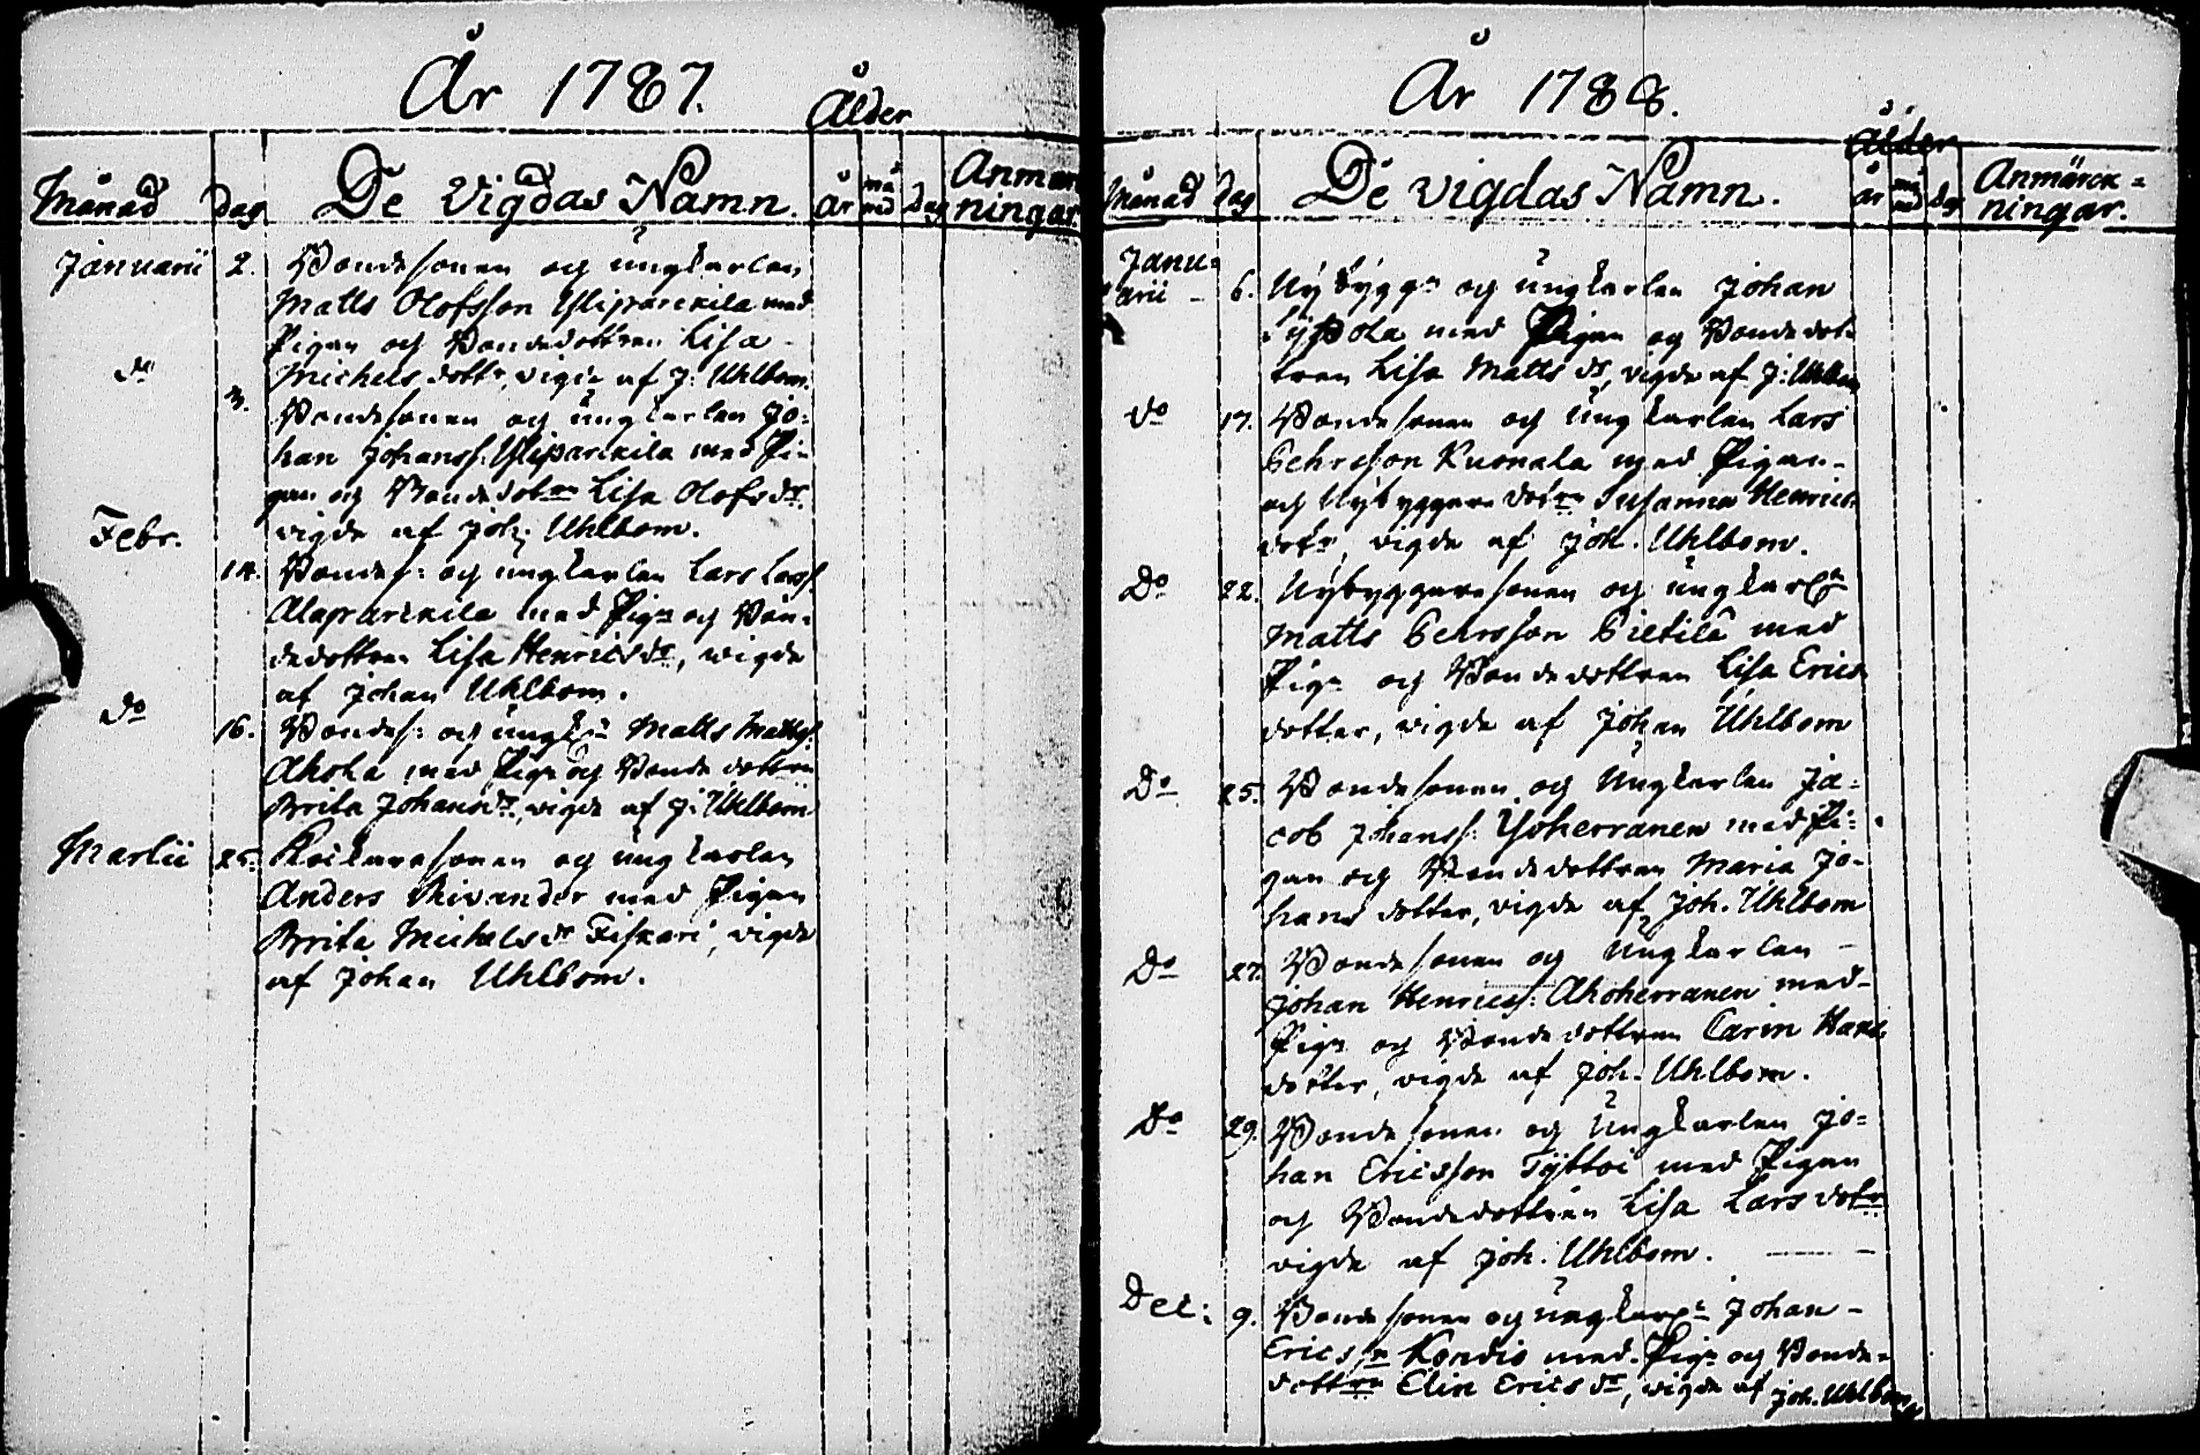 År 1787.
Ålder
Månad Dag De Vigdas Namn. år må nad Dag Anmän ningar
Januarii 2. Bondesonen och ungkarlen
Matts Olofsson Yliparckila med
Pigan och Bondedottren Lisa
do Michels dottr, vigde af J: Uhlbom.
3. Bondesonen och ungkarlen Jo=
han Johanss: Yliparckila med Pi=
gan och Bondedotrn Lisa Olofsdr
vigde af Joh: Uhlbom.
Febr.
14. Bondes: och ungkarlen Lars Larss:
Alaparckila med Pign och Bon=
dedottren Lisa Henricsdr, vigde
af Johan Uhlbom.
do
16. Bondes: och ungkn Matts Mattss:
Ahola med Pign och Bonde dottren
Brita Johansdr, vigde af J: Uhlbom
Martii 25. sonen och ungkarlen
Anders Rivander med Pigan
Brita Michelsdr Fiskari, vigde
af Johan Uhlbom.
År 1788.
Ålder
Månad Dag De vigdas Namn. år må nad Dag Anmärck=
ningar.
Janu=
arii - 6. Nybyggn och ungkarlen Johan
med Pigan och Bondedot=
tren Lisa Matts dr, vigde af J: Uhlbom
do 17. Bondesonen och Ungkarlen Lars
Pehrsson Kuonala med Pigan
och Nybyggare dotrn Susanna Henrics
dotr, vigde af Joh. Uhlbom.
Do 22. Nybyggaresonen och ungkarln
Matts Pehrsson Pietilä med
Pign och Bondedottren Lisa Erics
dotter, vigde af Johan Uhlbom
Do 25. Bondesonen och Ungkarlen Ja=
cob Johanss: Yliherranen med Pi=
gan och Bondedottren Maria Jo=
hans dotter, vigde af Joh. Uhlbom
Do 27. Bondesonen och Ungkarlen -
Johan Henricss: Ahoherranen med
Pign och Bondedottren Carin Hans
dotter, vigde af Joh. Uhlbom.
Do 29. Bondesonen och Ungkarlen Jo=
han Ericsson Tyttoi med Pigan
och Bondedottren Lisa Lars dotr
vigde af Joh. Uhlbom.
Dec: 9. Bondesonen och ungkarln Johan -
Ericssn Kondio med Pign och Bonde=
dottrn Elin Ericsdr, vigde af Joh. Uhlbom